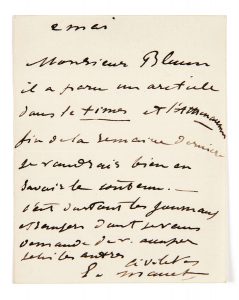 2 mai
Monsieur Blum
il a paru un article
dans le times et l'Athenaeum
fin de la semaine dernière
je voudrais bien en
savoir le contenu —
c'est surtout les journaux
étrangers dont je vous
demande de v. occuper
les autres
E. Manet